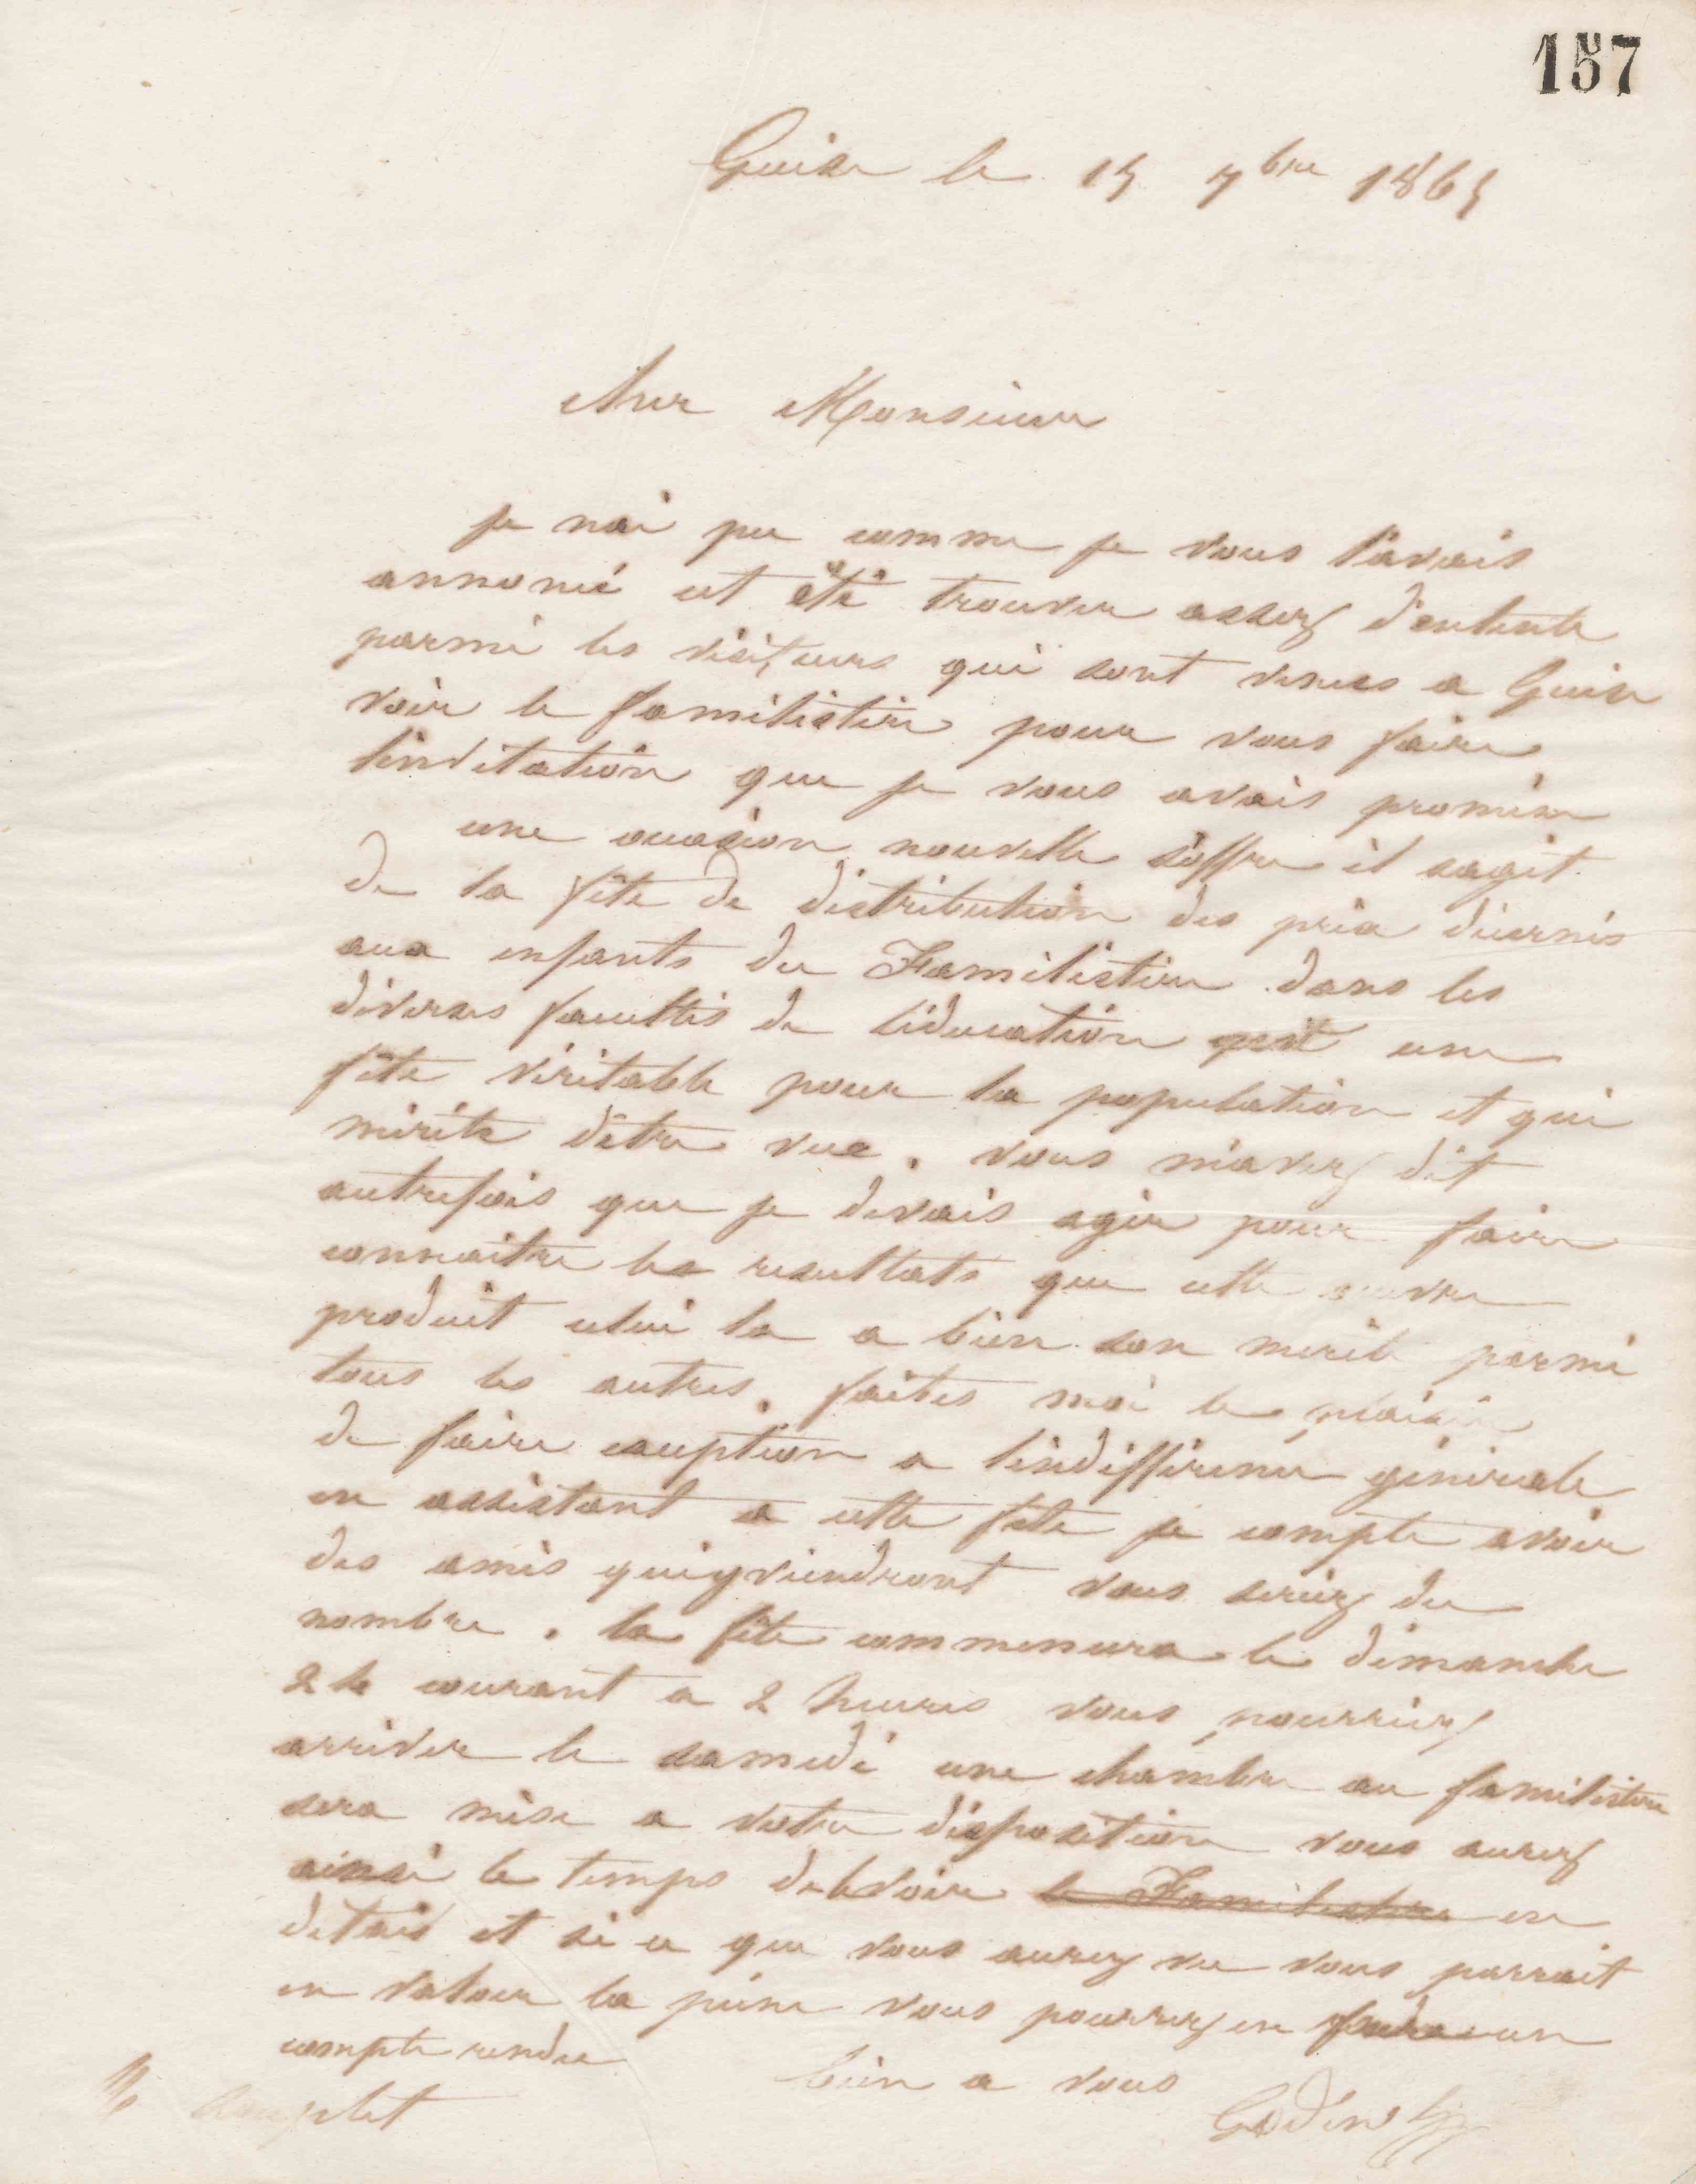 157
Guise le 15 7bre 1865
cher Monsieur
je nai pu comme je vous l'avais
annoncé cet été trouver assez d'entente
parmi les visiteurs qui sont venus a Guise
voir le familistère pour vous faire
linvitation que je vous avais promise
une occasion nouvelle s'offre il sagit
de la fête de distribution des prix décernés
aux enfants du Familistère dans les
diverses facultés de léducation une
fête véritable pour la population et qui
mérite dêtre vue. vous m'avez dit
autrefois que je devais agir pour faire
connaitre les resultats que cette œuvre
produit celui la a bien son merite parmi
tous les autres. faites moi le plaisir
de faire exception a lindifférence générale
en assistant a cette fête je compte avoir
des amis qui y viendront vous seriez du
nombre. la fête commencera le dimanche
24 courant a 2 heures vous pourriez
arriver le samedi une chambre au familistère
sera mise a votre disposition vous aurez
ainsi le temps de le voir le Familistère en
detail et si ce que vous aurez vu vous parrait
en valoir la peine vous pourrez en un
compte rendu
bien a vous
Godin